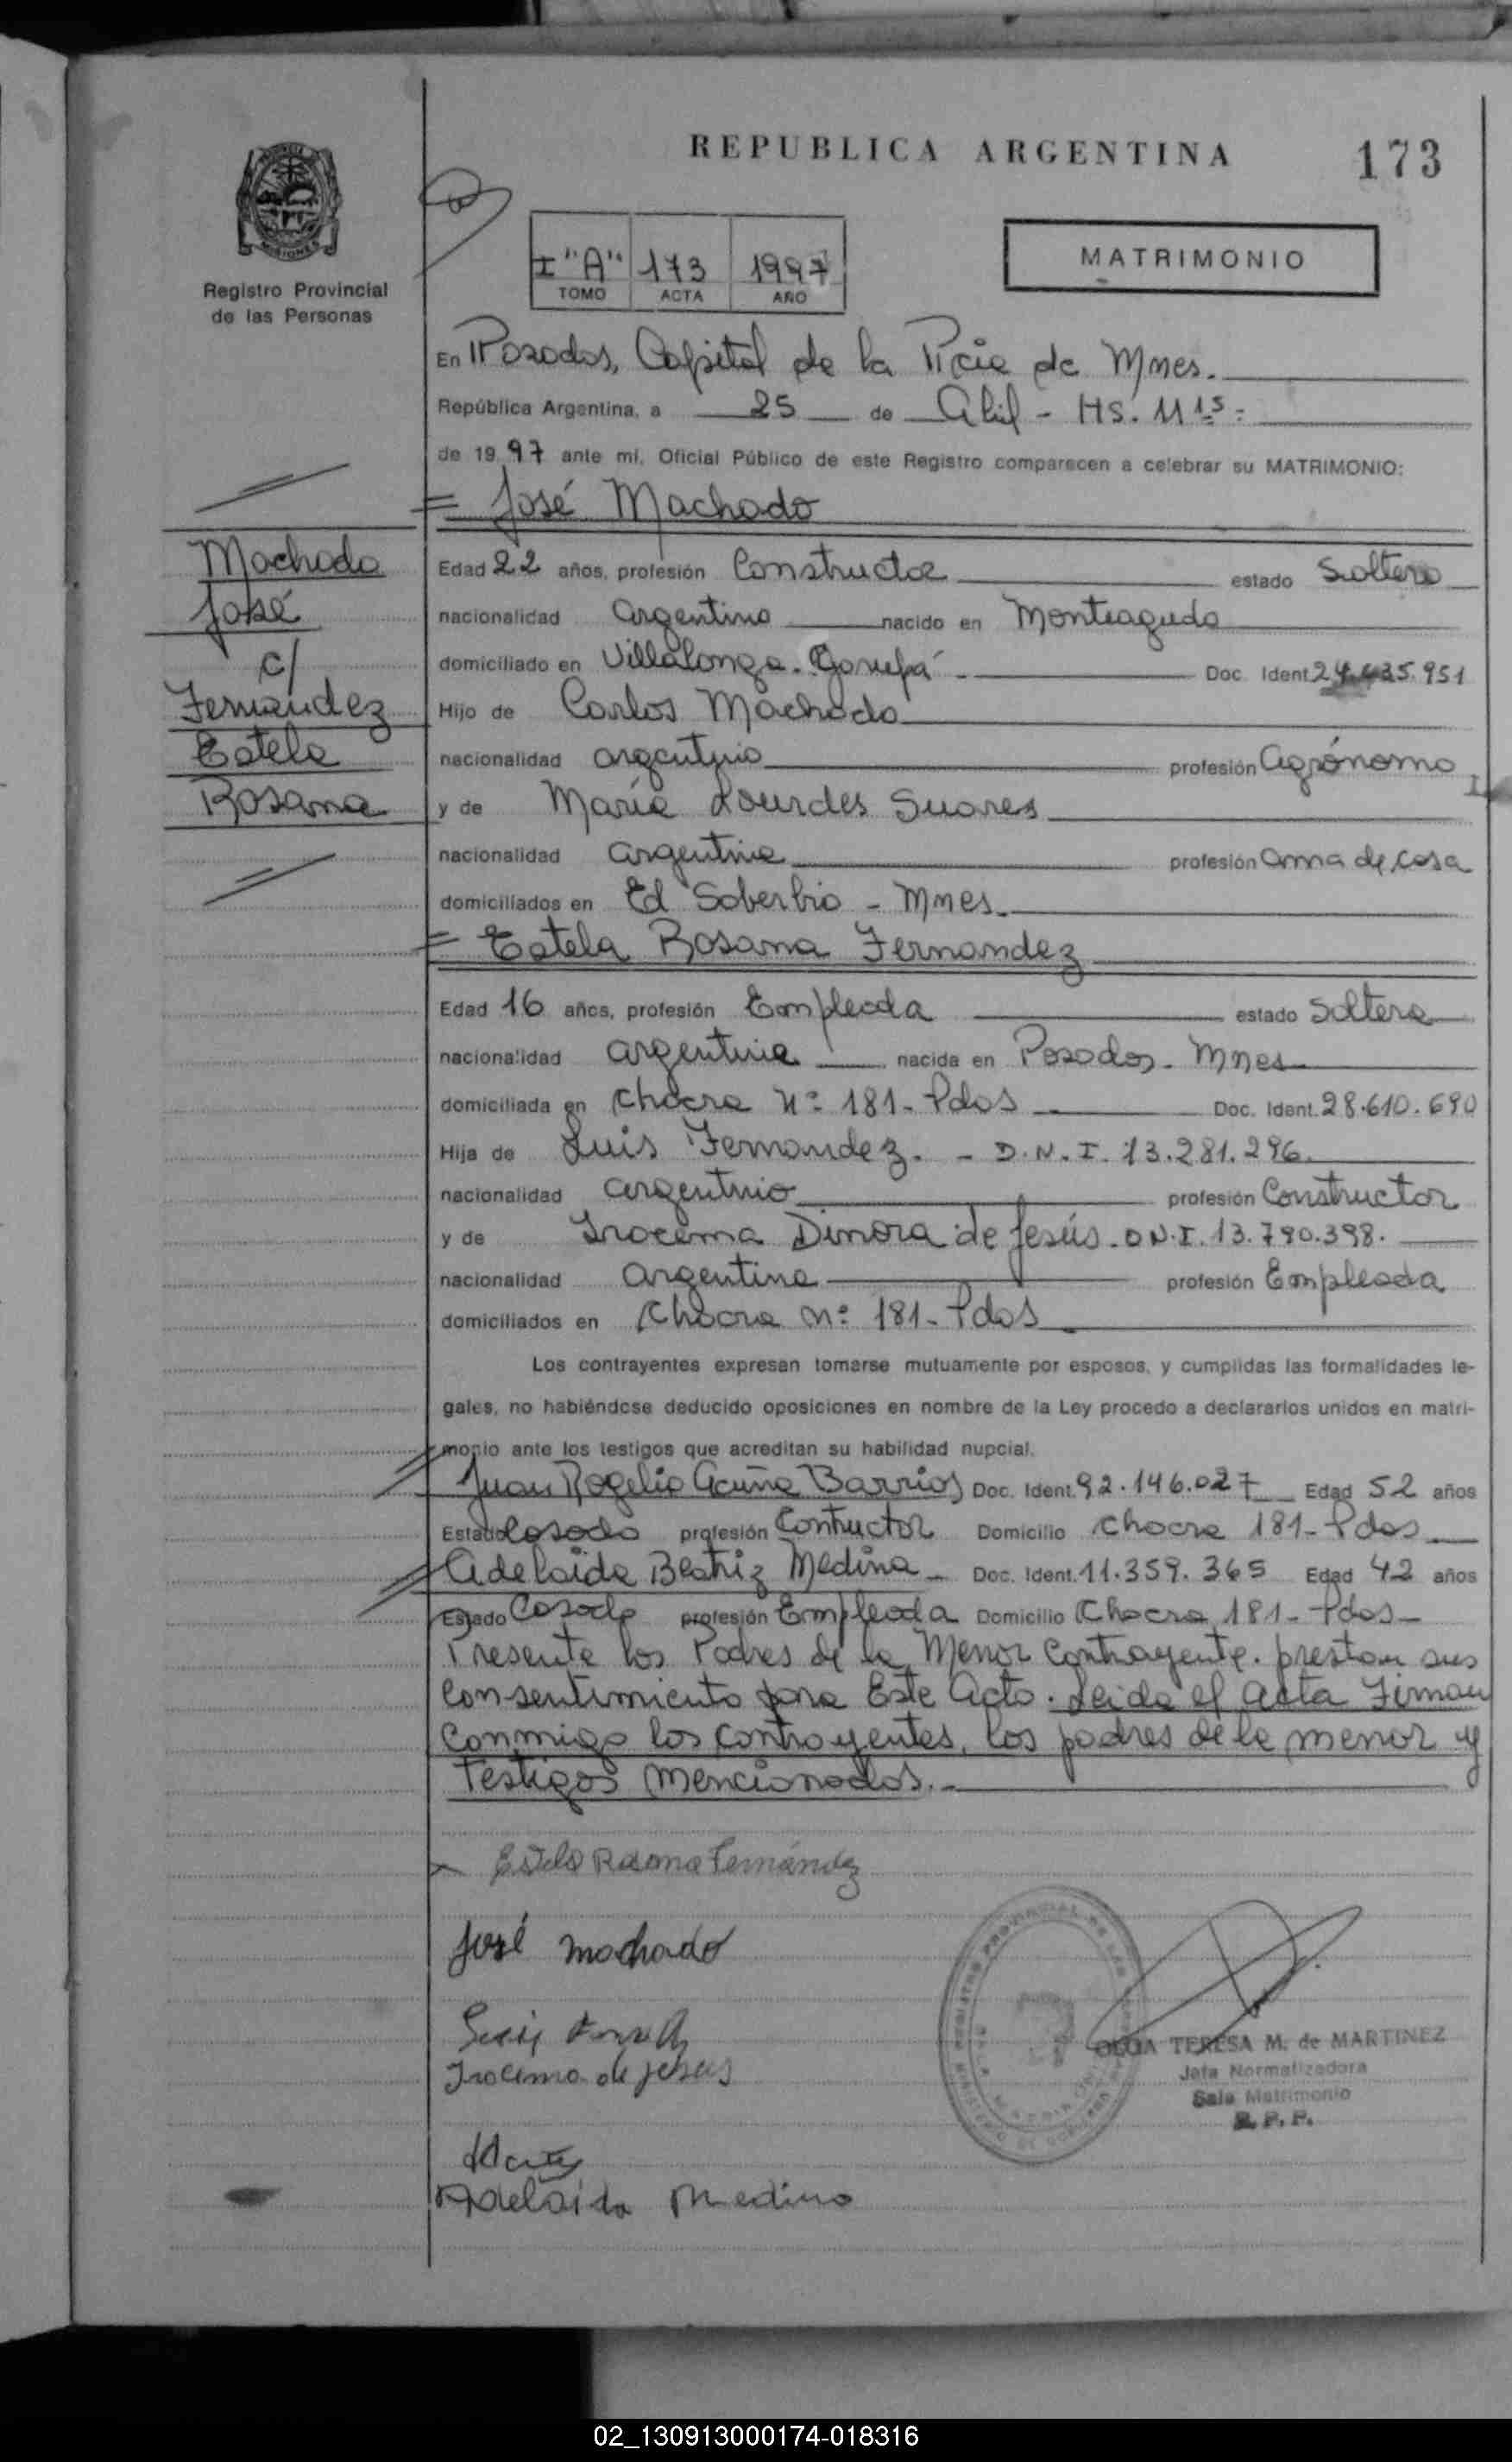 REPUBLICA ARGENTINA
173
Registro Provincial
de las Personas
I "A" 173 1997
TOMO ACTA AÑO
MATRIMONIO
En Posadas, Capital de la Pcia de Mnes.
República Argentina, a 25 de Abril - Hs. 11 15.
de 19 97 ante mí, Oficial Público de este Registro comparecen a celebrar su MATRIMONIO:
= José Machado
Machado
José
c/
Fernandez
Estela
Rosana
Edad 22 años, profesión Constructor estado Soltero
nacionalidad argentino nacido en Monteagudo
domiciliado en Villalonga. Garupá Doc. Ident. 24.435.951
Hijo de Carlos Machado
nacionalidad argentino profesión Agrónomo
y de María Lourdes Suares
nacionalidad argentina profesión ama de casa
domiciliados en El Soberbio - Mnes.
= Estela Rosana Fernandez
Edad 16 años, profesión Empleada estado Soltera
nacionalidad argentina nacida en Posadas - Mnes
domiciliada en Chacra Nº 181 - Pdas Doc. Ident. 28.610.690
Hija de Luis Fernandez. - D.N.I. 13.281.296.
nacionalidad argentino profesión Constructor
y de Irocema Dinora de Jesús. D.N.I. 13.790.398.
nacionalidad argentina profesión Empleada
domiciliados en Chacra nº 181 - Pdas
Los contrayentes expresan tomarse mutuamente por esposos, y cumplidas las formalidades le-
gales, no habiéndose deducido oposiciones en nombre de la Ley procedo a declararlos unidos en matri-
monio ante los testigos que acreditan su habilidad nupcial.
Juan Rogelio Acuña Barrios Doc. Ident. 92.146.027 Edad 52 años
Estado Casado profesión Contructor Domicilio Chacra 181 - Pdas
Adelaida Beatriz Medina Doc. Ident. 11.359.365 Edad 42 años
Estado Casada profesión Empleada Domicilio Chacra 181 - Pdas
Presente los Padres de la Menor Contrayente. prestan sus
consentimiento para Este Acto. Leida el Acta Firman
Conmigo los contrayentes, los padres de la menor y
Testigos mencionados.
Estela Rosana Fernández
José machado
Irocema de jesus
Adelaida Medina
OLGA TERESA M. de MARTINEZ
Jefa Normalizadora
Sala Matrimonio
R. P. P.
02_130913000174-018316